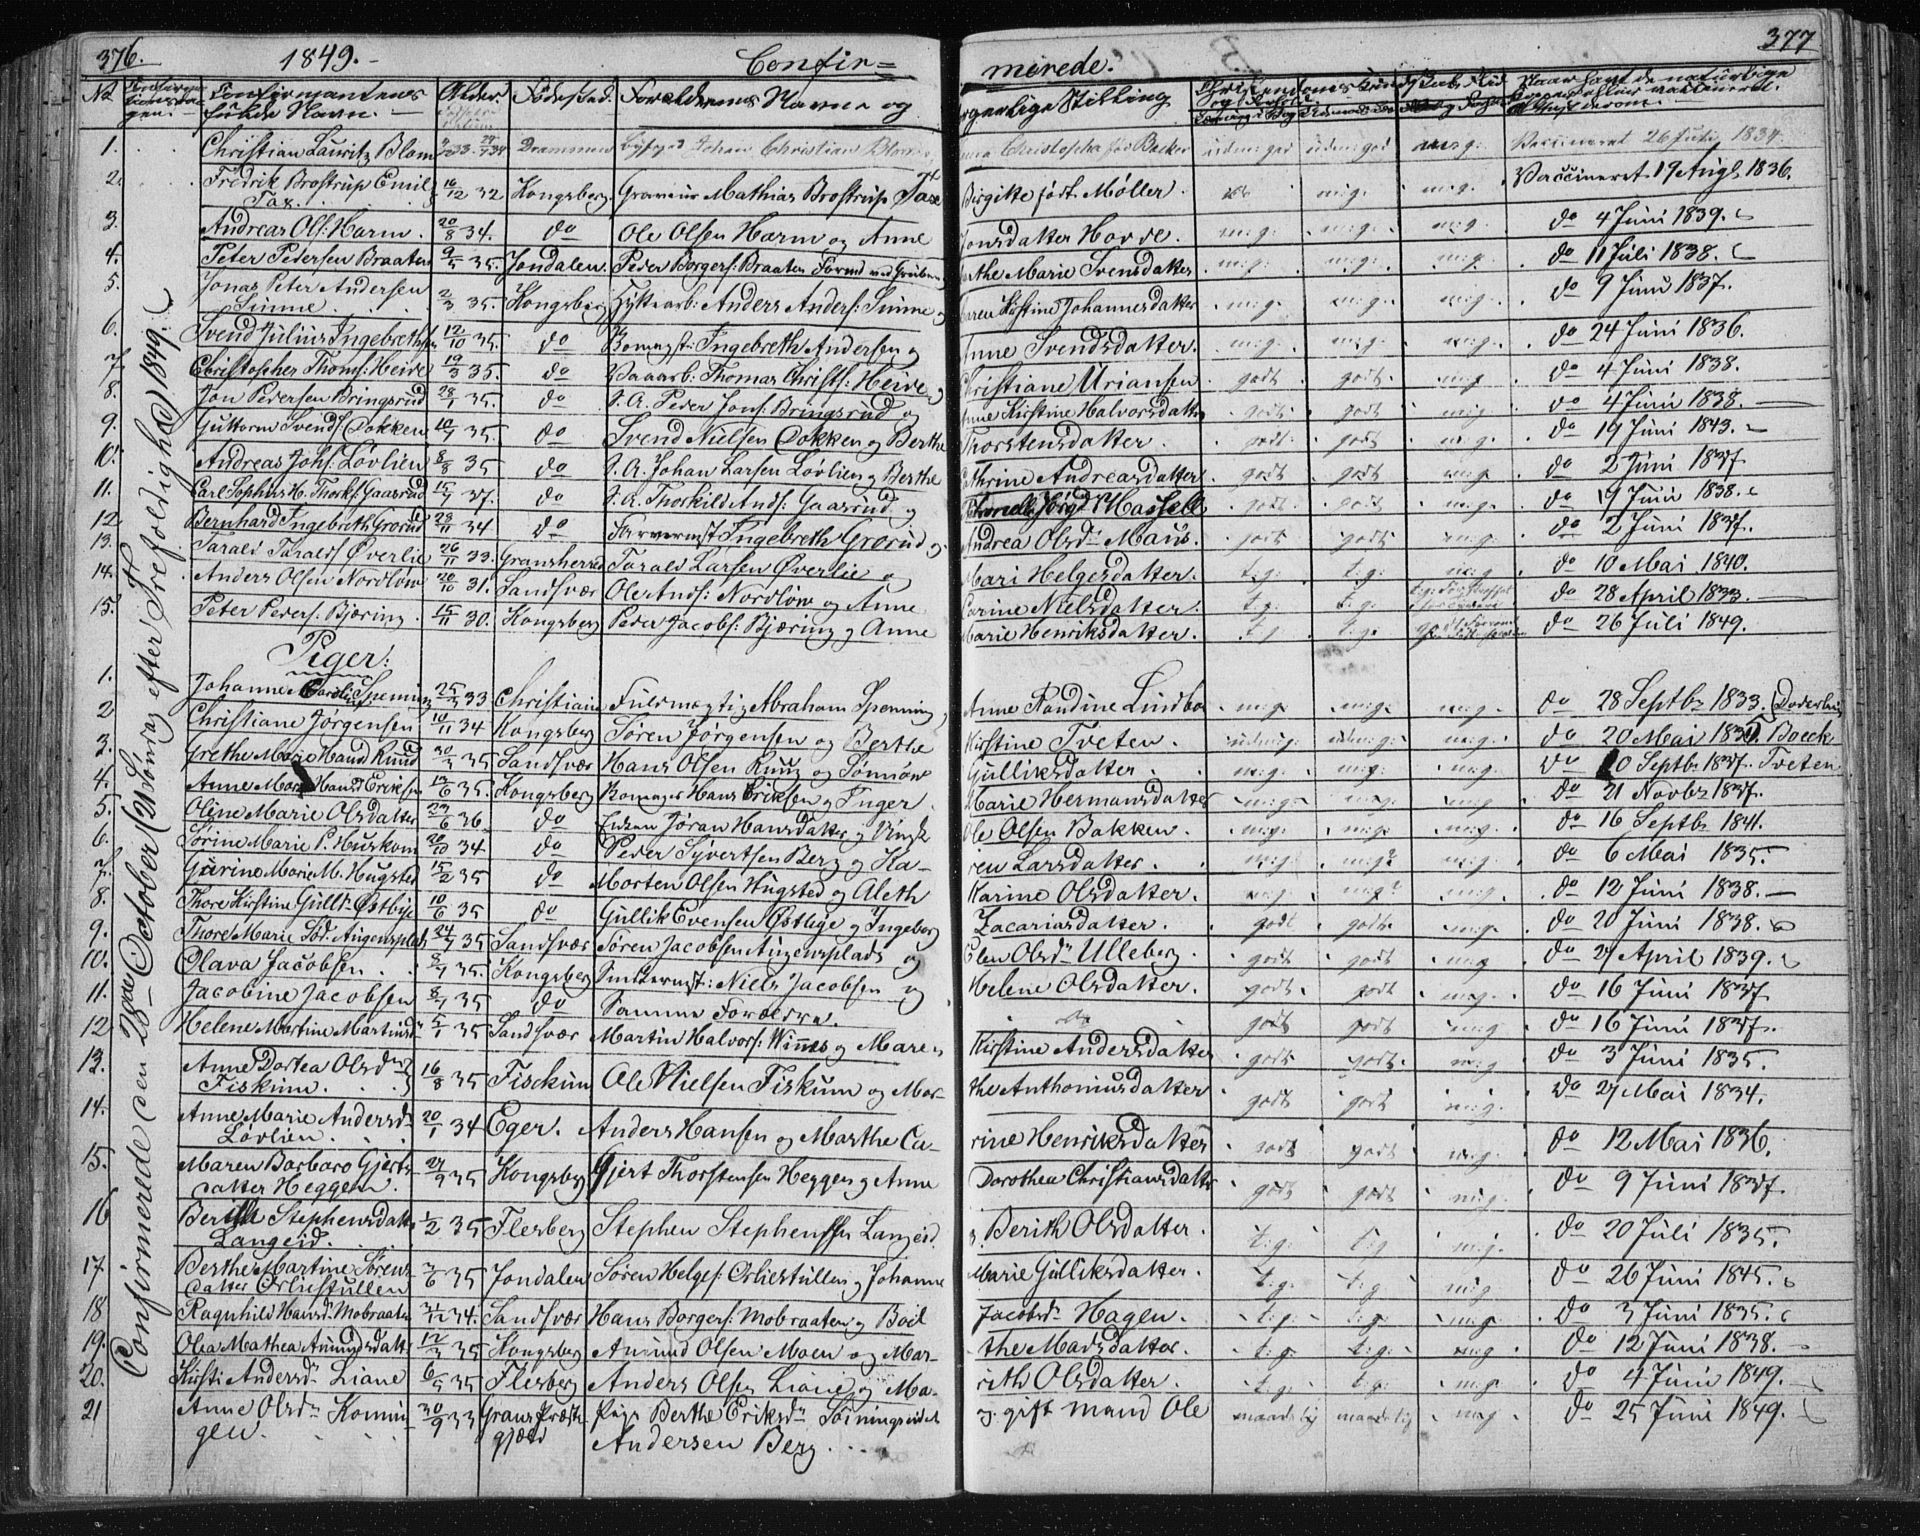 376. 1849. Confir=
No Confirmationsdagen. Confirmantenes fulde Navn. Alder. Fødested. Forældrenes Navne og
1. Christian Lauritz Blom Drammen Johan Christian Blom
2. Fredrik Brostrup Emil Fax. 16/12 32 Kongsberg Graveur Mathias Brostrup Faxe
3. Andreas Ols: Harm. 20/8 34. do Ole Olsen Harm og Anne
4. Peter Pedersen Braaten 9/5 35. Jondalen. Peder Borgers: Braaten Forend ved Gruben
5. Jonas Peter Andersen Sinne 2/3 35. Kongsberg Hyttearb: Anders Anders: Sinne og
6. Svend Julius Ingebrethsen 12/10 35. do Bomagst: Ingebreth Andersen og
7. Christopher Thoms: Heire 19/3 35. do Vaaarb: Thomas Christs: Heire og
8. Jon Pedersen Bringsrud 28/1 35. do S. A. Peder Jons: Bringsrud og
9. Guttorm Svends: Dokken 10/7 35. do Svend Nielsen Dokken og Berthe
10. Andreas Johs: Løvlien 8/8 35 do S. A. Johan Larsen Løvlien og Berthe
11. Carl Sophus H. Thorks: Gaasrud 15/7 37. do S. A. Thorkild Ands: Gaasrud og
12 Bernhard Ingebreth Grorud 28/11 34 do Farvermst Ingebreth Grorud og
13. Tarald Taralds: Øverlie 26/11 33. Gransherred Tarald Larsen Øverlie og
14. Anders Olsen Nordlow 20/10 31. Sandsvær Ole Ands: Nordlow og Anne
15. Peter Peders: Bjøring. 15/11 30. Kongsberg Peder Jacobs: Bjæring og Anne
Piger:
1. Johanne M. Spenning 25/5 33 Christiania Fuldmægtig Abraham Spenning
2 Christiane Jørgensen 10/11 34 Kongsberg Søren Jørgensen og Berthe
3. Grethe Marie Hansd Knud 30/3 35 Sandsvær Hans Olsen Knuz og Sønnøw
4. Anne Marie Hansd Eriksen 13/6 35. Kongsberg Bomager Hans Eriksen og Inger
5. Oline Marie Olsdatter 23/6 36. do Enken Jøran Hansdatter og
6. Sørine Marie P. Huskom 20/10 34 do Peder Syvertsen Berg og Ka-
7. Gurine Marie M. Hugsted 15/2 35 do Morten Olsen Hugsted og Aleth
8. Thore Kirstine Gull: Østbye 10/6 35 do Gullik Evensen Østbye og Ingeborg
9. Thore Marie Sød: Augensplads 24/7 35 Sandsvær Søren Jacobsen Augensplads og
10. Olava Jacobsen 8/7 35. Kongsberg Snedkermst: Niels Jacobsen og
11. Jacobine Jacobsen 8/7 35 do Samme Forældre.
12 Helene Martine Martinsd 5/1 35 Sandsvær Martin Halvors: Winnes og Maren
13. Anne Dortea Olsd Fiskum. 16/8 35 Fisckum Ole Nielsen Fiskum og Mar-
14. Anne Marie Andersd Løvlien. 20/1 34 Eger. Anders Hansen og Marthe Ca-
15. Maren Barbara Gjertsdatter Heggen. 27/9 35 Kongsberg Gjert Thorstensen Heggen og Anne
16 Berith Stephensdatt Langeid. 1/2 35 Flesberg Stephen Stephenssen Langeid
17. Berthe Martine Sørensdatter Orliestullen 3/6 35 Jondalen Søren Helges: Orliestullen og Johanne
18 Ragnhild Hansd: Mobraaten 31/12 34. Sandsvær Hans Borgers: Mobraaten og Boil
19. Olea Mathea Amundsdatt 12/3 35 Kongsberg Amund Olsen Moen og Mar-
20. Kirsti Andersd Liane 6/5 35 Flesberg Anders Olsen Liane og Ma-
21 Anne Olsd Konnungen. 30/9 33 Grans Præstegjæld Pige Berthe Eriksd
Andersen Berg.
Confirmerede den 28de October (21 Søndag efter Trefoldighed) 1849.
377
mirede.
borgerlige Stilling Naar samt de naturlige
Christopha før Becker udmærket udmærket m:g: Vaccineret 26 Juli 1834.
Birgitte født Møller. m:g: m:g. Vaccineret 19 Augt 1836.
Jonsdatter Hovde. m:g: m:g: m:g. do 4 Juni 1839.
Marthe Marie Svensdatter m:g: m:g: m:g. do 11 Juli 1838.
Karen Kirstine Johannesdatter m:g: m:g: m:g. do 9 Juni 1837.
Anne Svendsdatter. m:g: m:g: m:g. do 24 Juni 1836.
Christiane Uriansen godt godt m:g do 4 Juni 1838.
Anne Kirstine Halvorsdatter godt godt m:g do 4 Juni 1838.
Thorstensdatter. godt godt m:g do 14 Juni 1843.
Cathrine Andreasdatter godt godt m:g do 2 Juni 1837
Massell godt godt m:g. do 4 Juni 1838.
Andrea Olsd: Maus. godt godt m:g. do 2 Juni 1837.
Mari Helgesdatter. t:g: t:g: m:g do 10 Mai 1840.
Karine Nielsdatter. t:g: t:g: do 28 April 1833.
Marie Henriksdatter. t:g t:g: do 26 Juli 1849.
Anne Pandine Lindbo m:g: m:g: m:g: do 28 Septbr 1833.
Kirstine Tveten. udm:g: udm:g: m:g: do 20 Mai Boeck
Gulliksdatter. m:g. m:g: m:g. do 0 Septbr 1837. Tveten
Marie Hermansdatter m:g. m:g: m:g: do 21 Novbr 1837.
Ole Olsen Bakken. m:g: m:g: m:g: do 16 Septbr 1841.
ren Larsdatter. m:g: m:g: m:g: do 6 Mai 1835.
Karine Olsdatter. m:g: m:g: m:g: do 12 Juni 1838.
Zacariasdatter. godt godt m:g. do 20 Juni 1838.
Elen Olsd Ulleberg. godt godt m:g do 27 April 1839.
Helene Olsdatter. godt godt m:g. do 16 Juni 1837
do godt godt m:g do 16 Juni 1837.
Kirstine Andersdatter godt godt m:g do 3 Juni 1835.
the Anthoniusdatter godt godt m:g. do 27 Mai 1834.
rine Henriksdatter godt godt m:g. do 12 Mai 1836.
Dorothea Christiansdatter godt godt m:g. do 9 Juni 1837.
og Berith Olsdatter. t:g. t:g m:g. do 20 Juli 1835.
Marie Gulliksdatter. t:g. t:g m:g. do 26 Juni 1845.
Jacobsd: Hagen. t:g: t:g: m:g: do 3 Juni 1835.
the Marsdatter. t:g: t:g: m:g: do 12 Juni 1838.
rith Olsdatter. t:g: t:g: m:g: do 4 Juni 1849.
og gift Mand Ole maadelig maadelig m:g: do 25 Juni 1849.